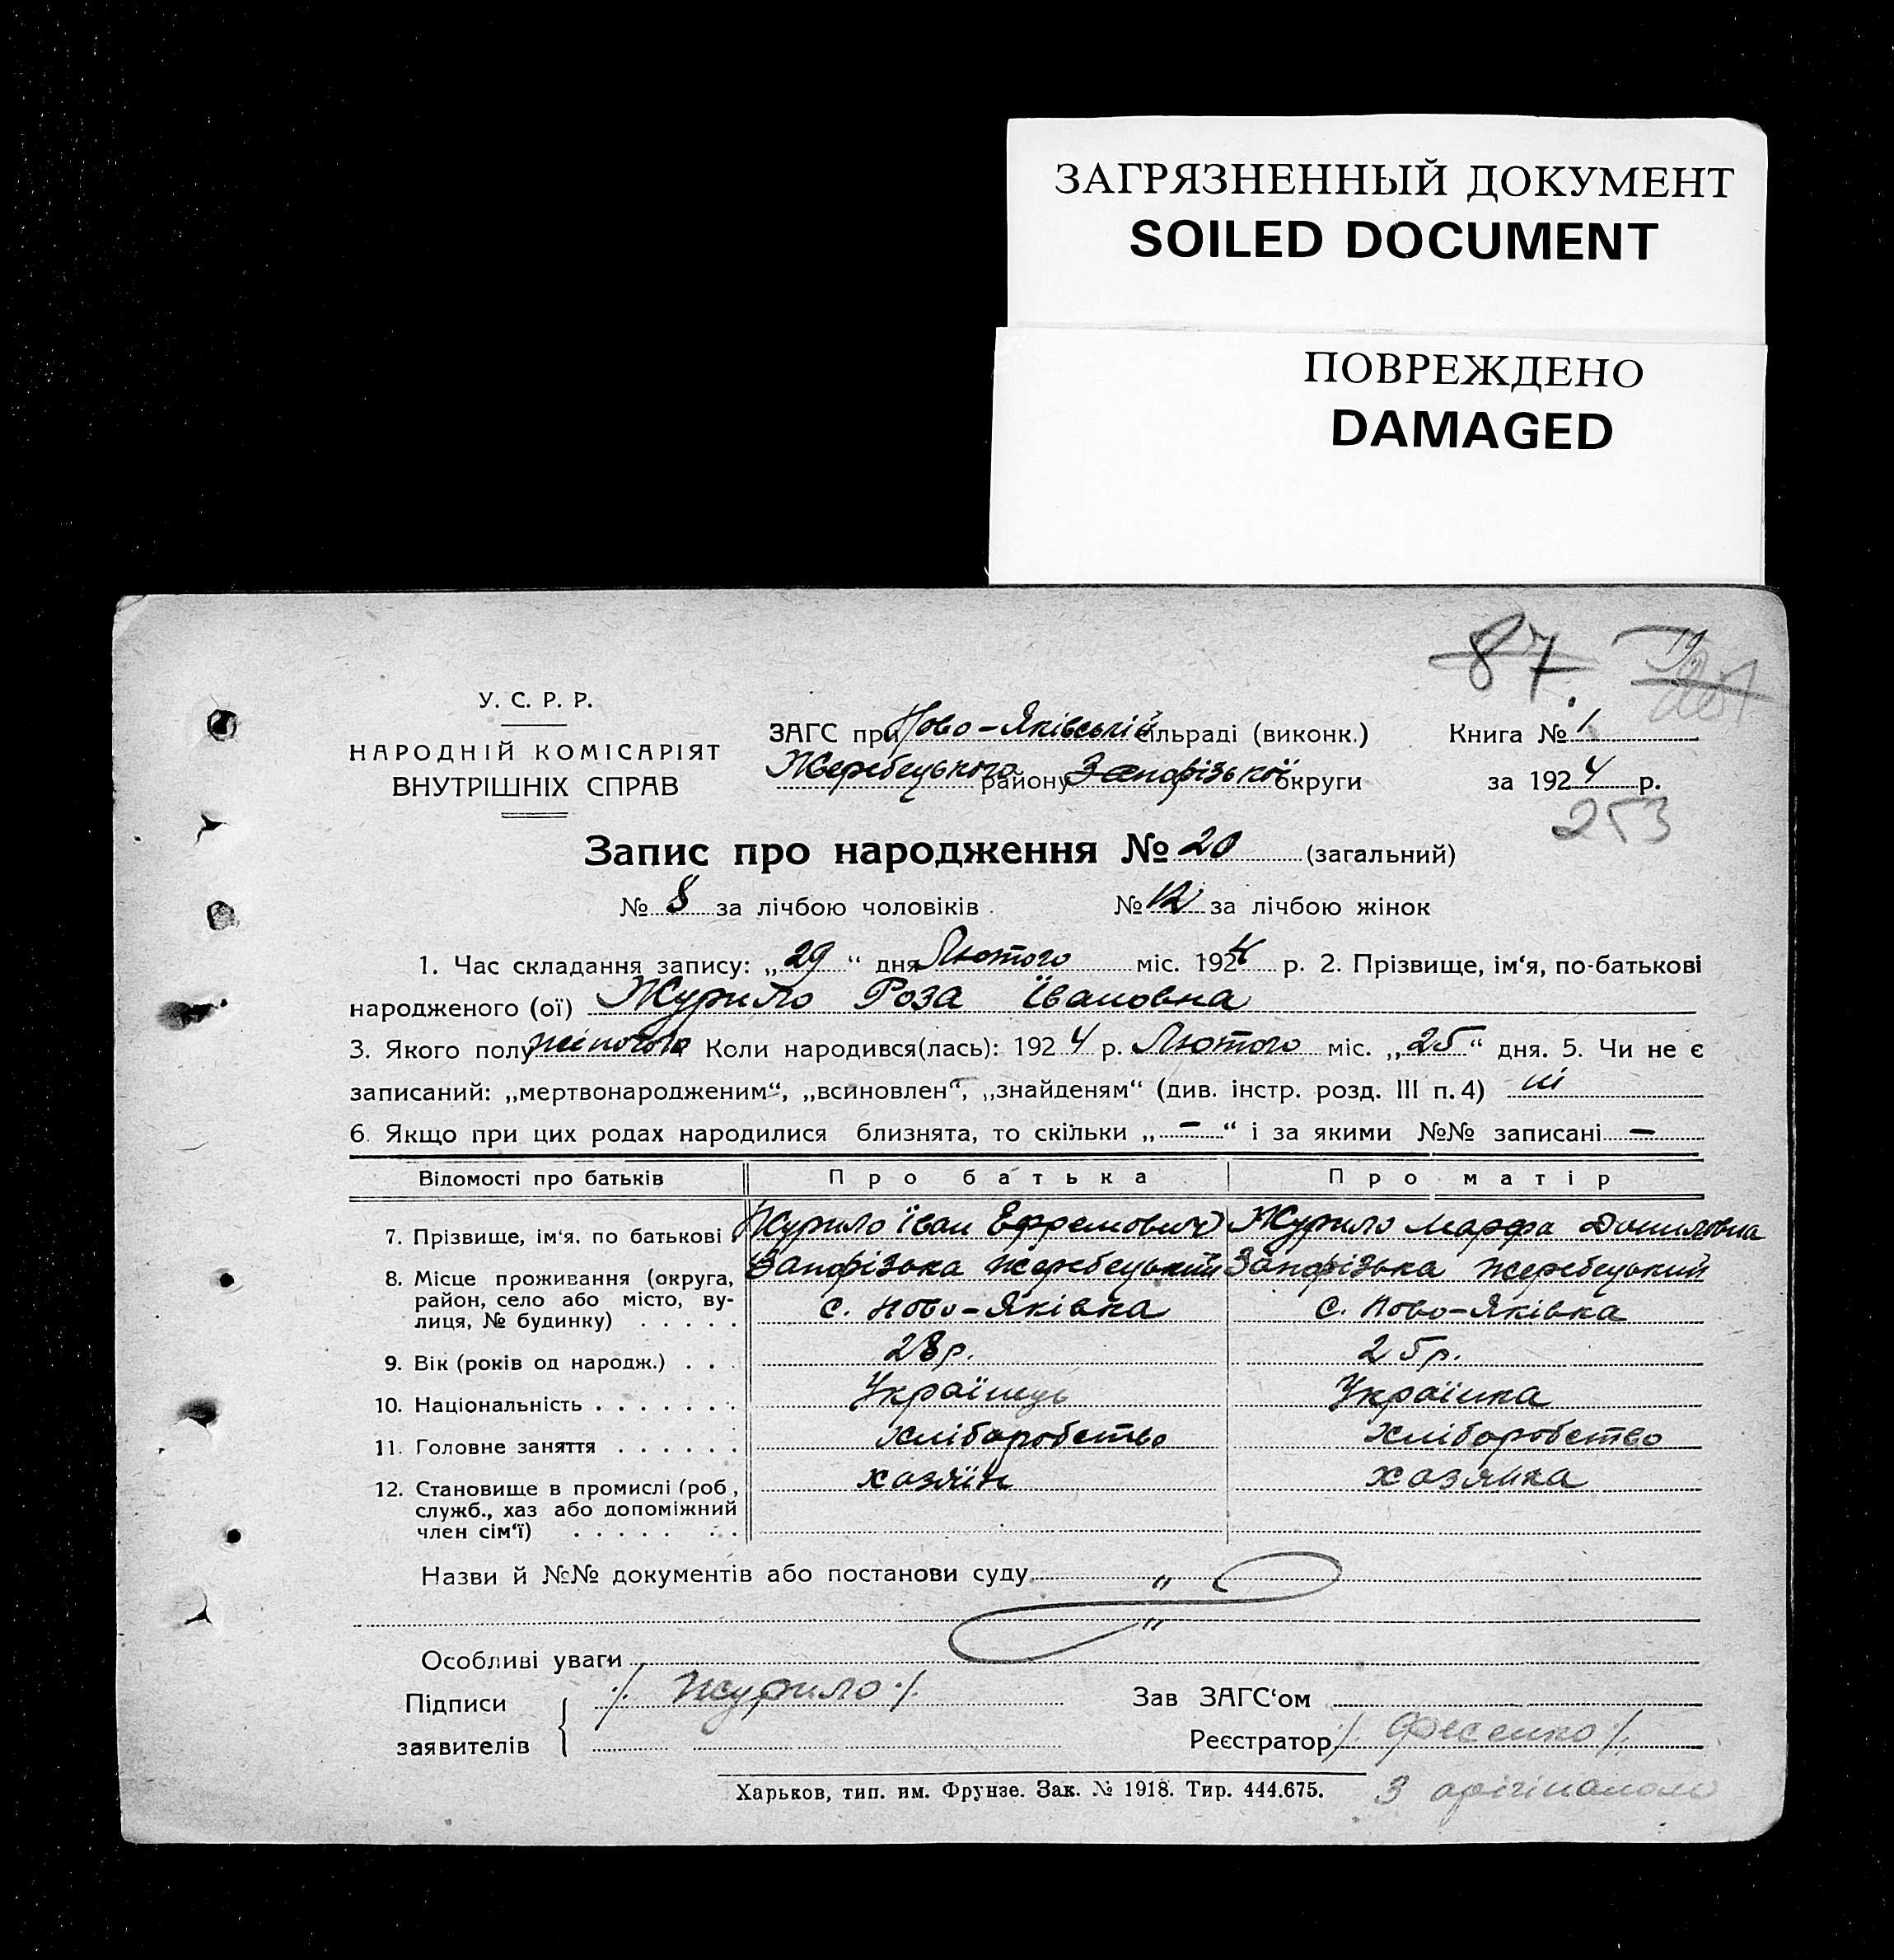 ЗАГРЯЗНЕННЫЙ ДОКУМЕНТ
SOILED DOCUMENT
ПОВРЕЖДЕНО
DAMAGED
87
У. С. Р. Р.
НАРОДНІЙ КОМІСАРІЯТ
ВНУТРІШНІХ СПРАВ
ЗАГС при Ново-Яківській сільраді (виконк.) Книга № 1
Жеребецького району Запорізької округи за 1924 р.
253
Запис про народження № 20 (загальний)
№ 8 за лічбою чоловіків № 12 за лічбою жінок
1. Час складання запису: „29“ дня Лютого міс. 1924 р. 2. Прізвище, ім‘я, по-батькові
народженого (ої) Журило Роза Івановна
3. Якого полу жіночого Коли народився(лась): 1924 р. Лютого міс. „25“ дня. 5. Чи не є
записаний: „мертвонародженим“, „всиновлен“, „знайденям“ (див. інстр. розд. III п. 4) ні
6. Якщо при цих родах народилися близнята, то скільки „–“ і за якими №№ записані –
Відомості про батьків Про батька Про матір
7. Прізвище, ім‘я. по батькові Журило Іван Ефремович Журило Марфа Даниловна
8. Місце проживання (округа, Запорізька Жеребецький Запорізька Жеребецький
район, село або місто, ву- с. Ново-Яківка с. Ново-Яківка
лиця, № будинку) . . . . .
9. Вік (років од народж.) . . 28 р. 25 р.
10. Національність . . . . . . . Українець Українка
11. Головне заняття . . . . . . Хліборобство Хліборобство
12. Становище в промислі (роб, хазяїн хазяйка
служб., хаз або допоміжний
член сім‘ї) . . . . . . .
Назви й №№ документів або постанови суду "
"
Особливі уваги
Підписи /. Журило ./. Зав ЗАГС‘ом
заявителів Реєстратор /. Фесенко /.
Харьков, тип. им. Фрунзе. Зак. № 1918. Тир. 444.675. З орігіналом